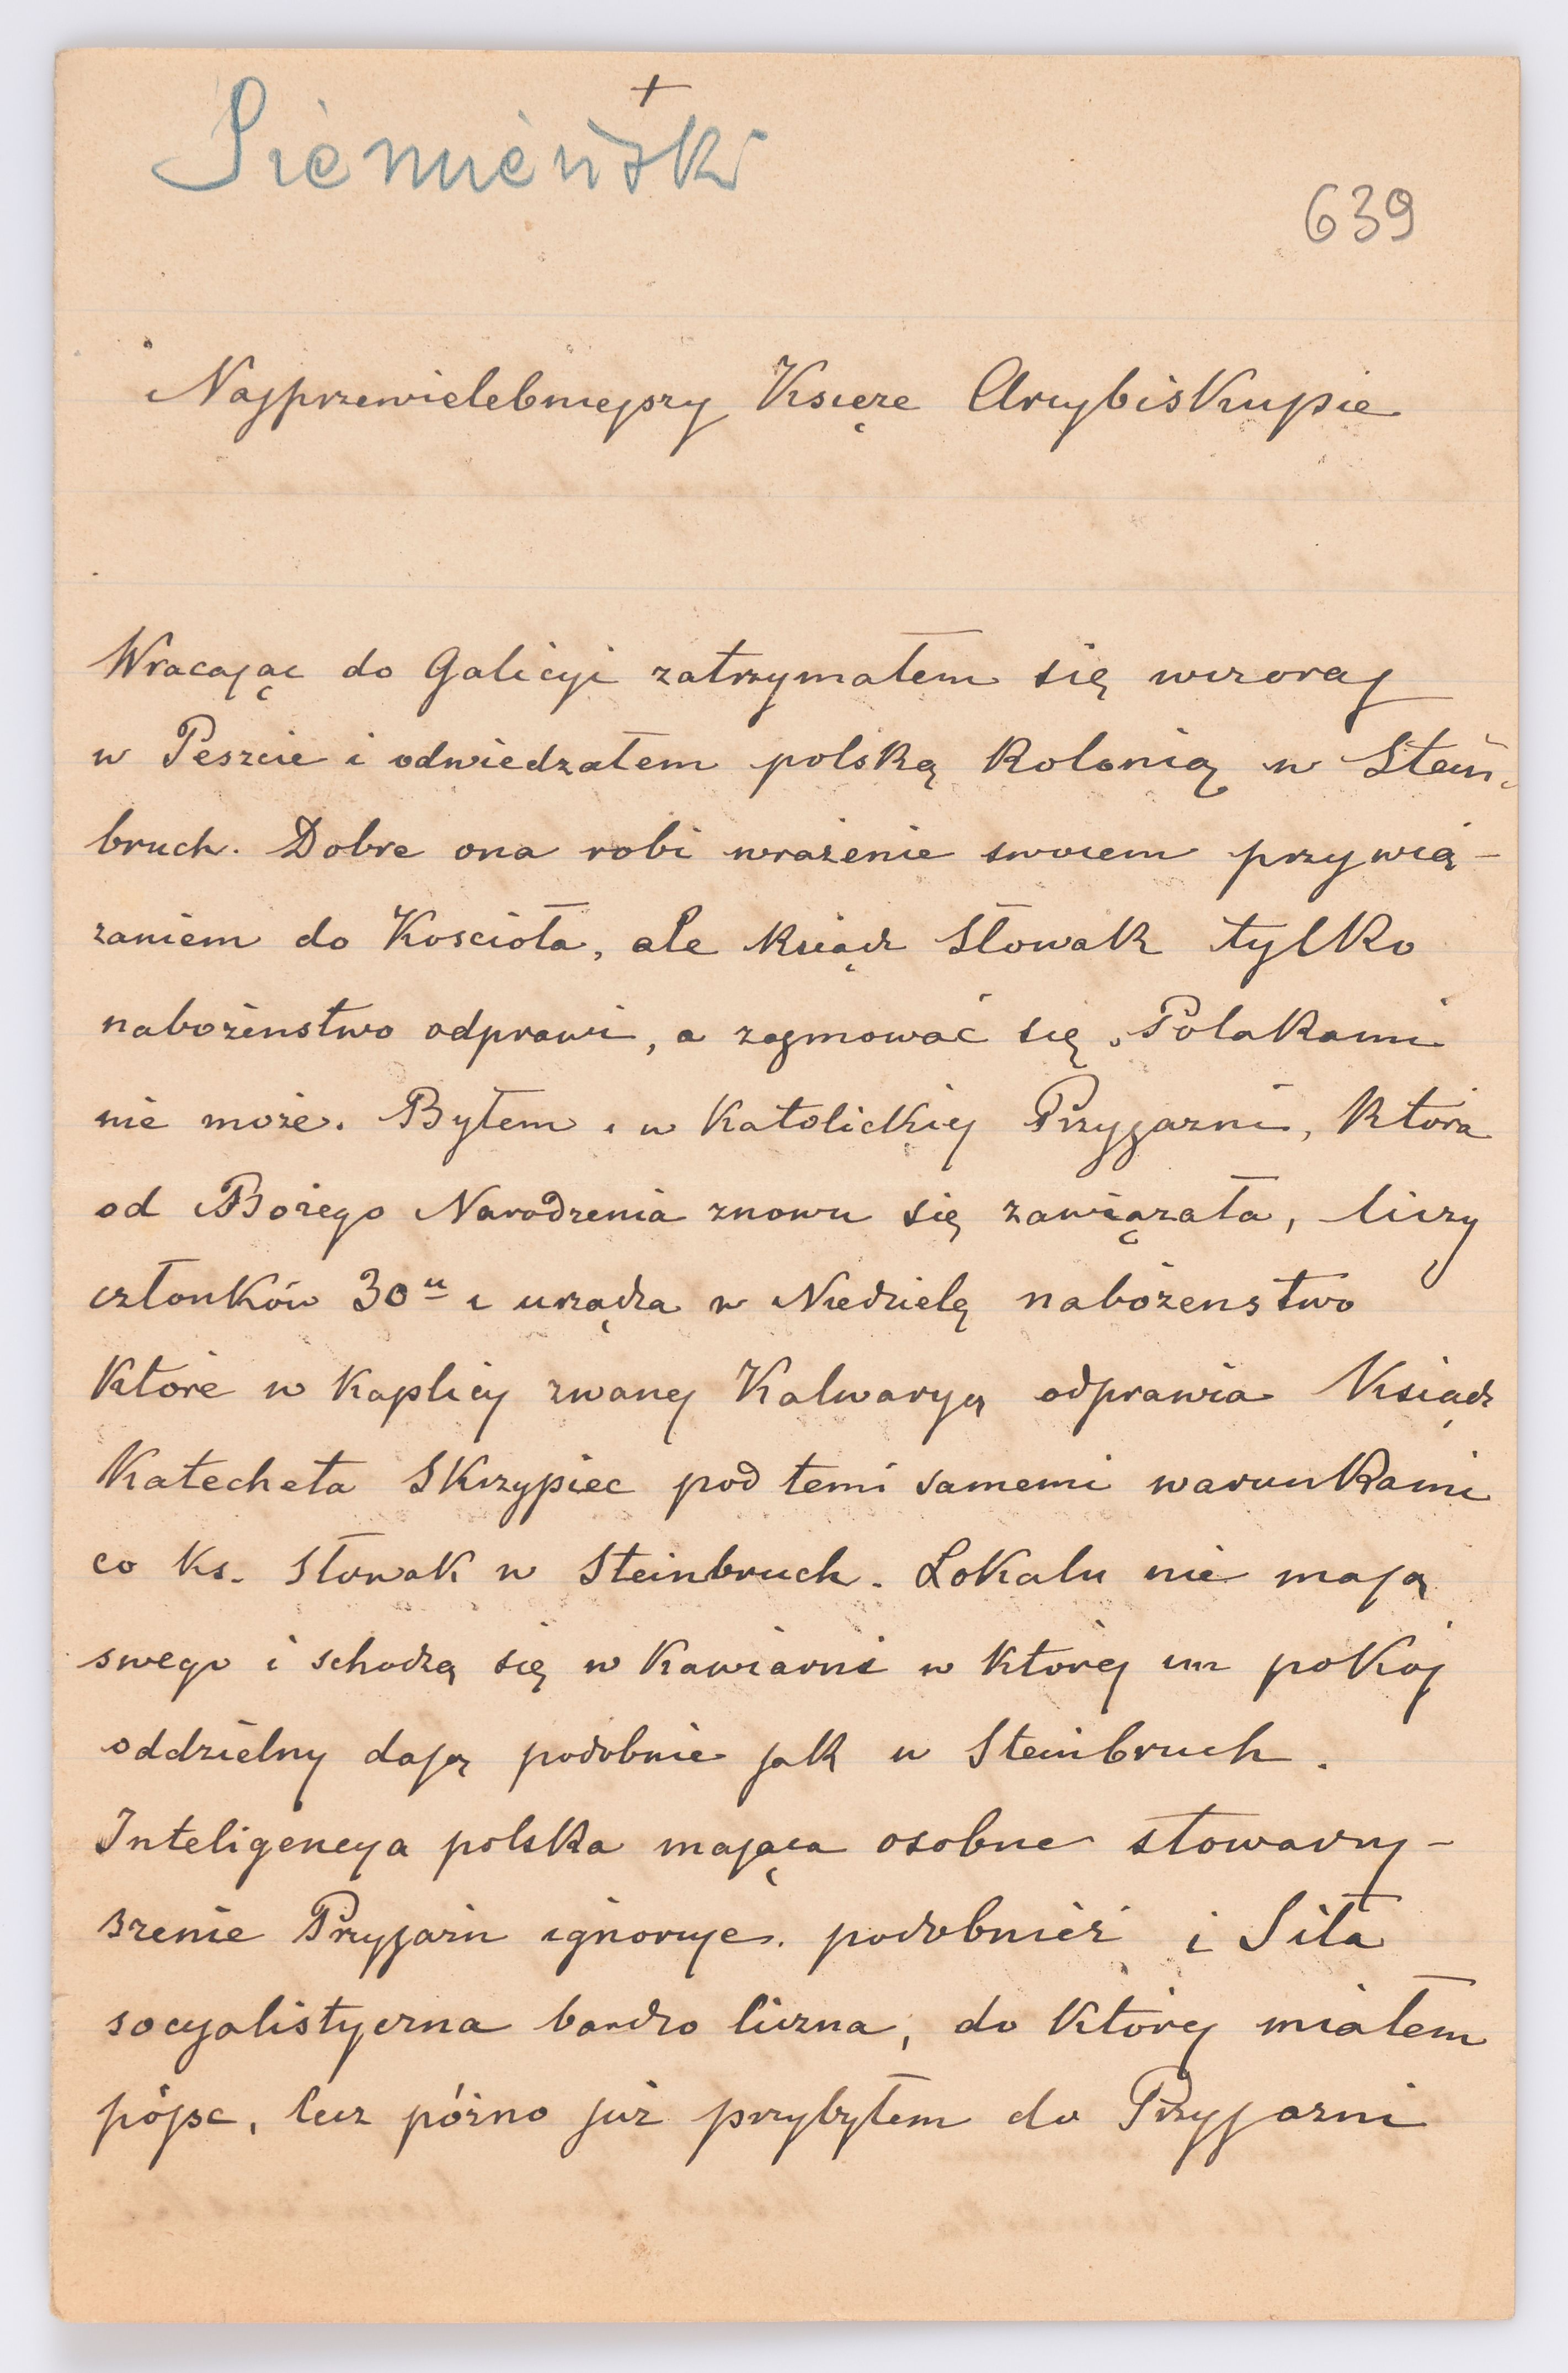 +
Siemieński
639
Najprzewielebniejszy Księże Arcybiskupie
Wracając do Galicyi zatrzymałem się wczoraj
w Peszcie i odwiedzałem polską kolonią w Stein-
bruch. Dobre ona robi wrażenie swoiem przywią-
zaniem do Koscioła, ale ksiądz Słowak tylko
nabożenstwo odprawi, a zajmować się Polakami
nie może. Byłem i w Katolickiej Przyjazni, która
od Bożego Narodzenia znowu się zawiązała, liczy
członków 30u i urządza w Niedzielę nabożenstwo
które w Kaplicy zwanej Kalwaryą odprawia Ksiądz
Katecheta Skrzypiec pod temi samemi warunkami
co ks. Słowak w Steinbruch. Lokalu nie mają
swego i schodzą się w kawiarni w której im pokój
oddzielny dają podobnie jak w Steinbruch.
Inteligencya polska mająca osobne stowarzy-
szenie Przyjazn ignoruje. podobnież i Siła
socyalistyczna bardzo liczna, do której miałem
pójsc, lecz pózno już przybyłem do Przyjazni